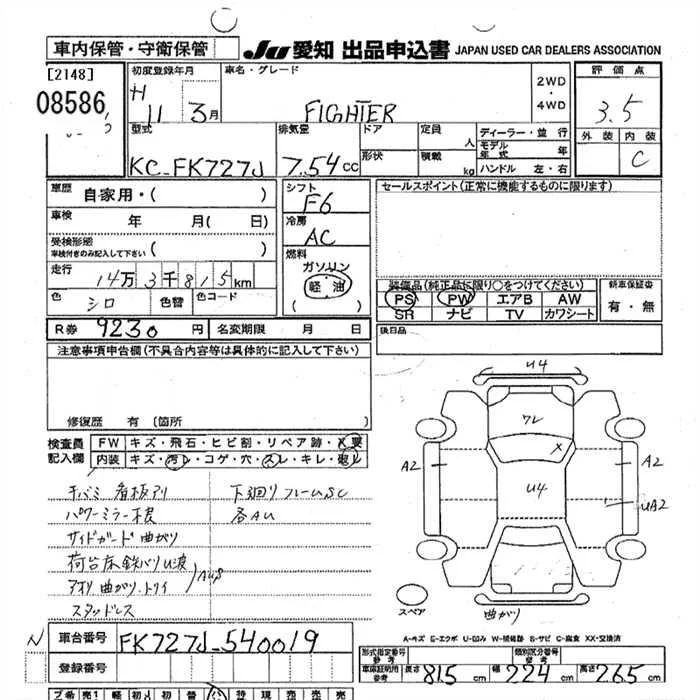 車内保管・守衛保管
JU 愛知 出品申込書 JAPAN USED CAR DEALERS ASSOCIATION
[2148]
08586
初度登録年月
H 11 3月
車名・グレード
FIGHTER
2WD
・
4WD
評価点
3.5
外装 内装
C
型式
KC-FK727J
排気量
7.54cc
ドア
形状
定員
人
積載
kg
ディーラー・並行
モデル年式 年
ハンドル 左・右
車歴
自家用・( )
車検
年 月( 日)
受検形態
車検付きのみ記入して下さい ( )
走行
14万3千815km
色
シロ
色替
色コード
シフト
F6
冷房
AC
燃料
ガソリン
軽油
( )
セールスポイント(正常に機能するものに限ります)
装備品(純正品に限り○をつけてください)
PS PW エアB AW
SR ナビ TV カワシート
新車保証書
有・無
R券 9230円 名変期限 月 日
後日品
注意事項申告欄(不具合内容等は具体的に記入して下さい)
修復歴 有(箇所
検査員
記入欄
FW キズ・飛石・ヒビ割・リペア跡・X要
内装 キズ・汚レ・コゲ・穴・スレ・キレ・
キバミ 看板アリ
下廻りフレームSC
パワーミラー根
各AU
サイドガード曲がり
荷台床鉄バリU波
アオリ曲がり・トリイ
スタッドレス
U4
ワレ
X
U4
A2
A2
UA2
スペア
曲がり
A-キズ E-エクボ U-凹み W-補修跡 S-サビ C-腐食 XX-交換済
N
車台番号 FK727J-540019
登録番号
形式指定番号
参考
類別区分番号
参考
車庫証明用
参考
長さ 815cm 幅 224cm 高さ 265cm